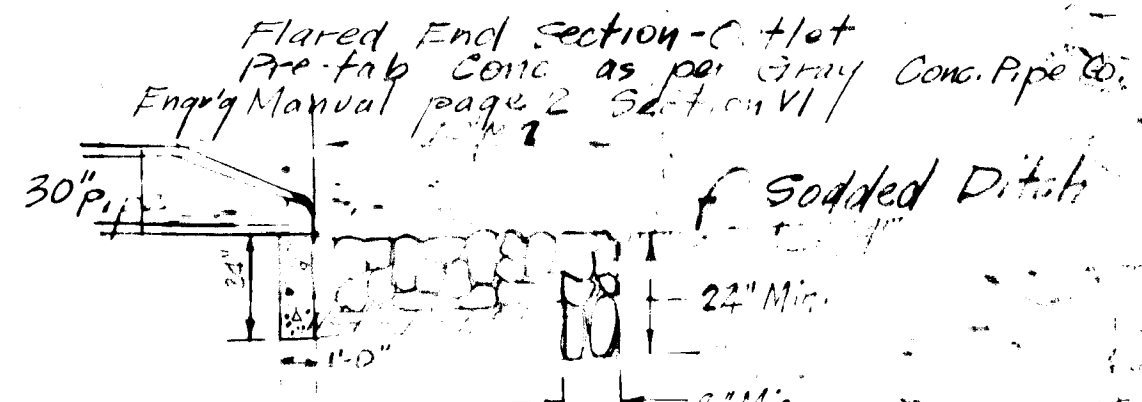 Flared End Section-Outlet
Pre-fab Conc as per Gray Conc. Pipe Co.
Engr'g Manual page 2 Section VI
30" Pipe
Sodded Ditch
24"
24" Min.
1'-0"
Min.